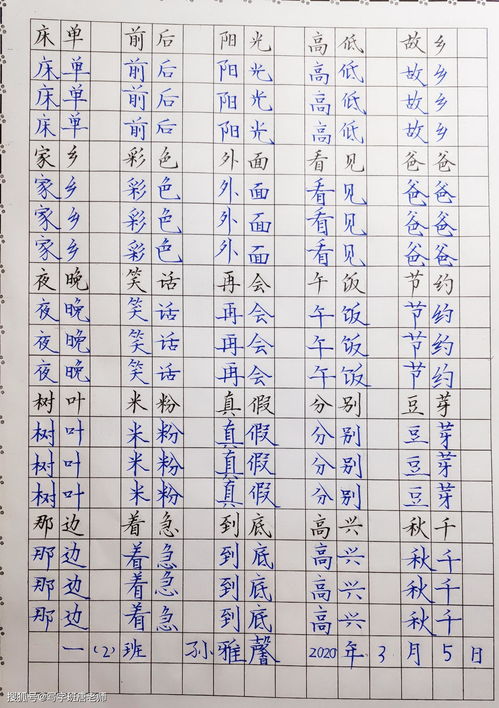 床单 前后 阳光 高低 故乡
床单 前后 阳光 高低 故乡
床单 前后 阳光 高低 故乡
床单 前后 阳光 高低 故乡
家乡 彩色 外面 看见 爸爸
家乡 彩色 外面 看见 爸爸
家乡 彩色 外面 看见 爸爸
家乡 彩色 外面 看见 爸爸
夜晚 笑话 再会 午饭 节约
夜晚 笑话 再会 午饭 节约
夜晚 笑话 再会 午饭 节约
夜晚 笑话 再会 午饭 节约
树叶 米粉 真假 分别 豆芽
树叶 米粉 真假 分别 豆芽
树叶 米粉 真假 分别 豆芽
树叶 米粉 真假 分别 豆芽
那边 着急 到底 高兴 秋千
那边 着急 到底 高兴 秋千
那边 着急 到底 高兴 秋千
那边 着急 到底 高兴 秋千
一(2)班 孙雅馨 2020年3月5日
搜狐号@写字班唐老师